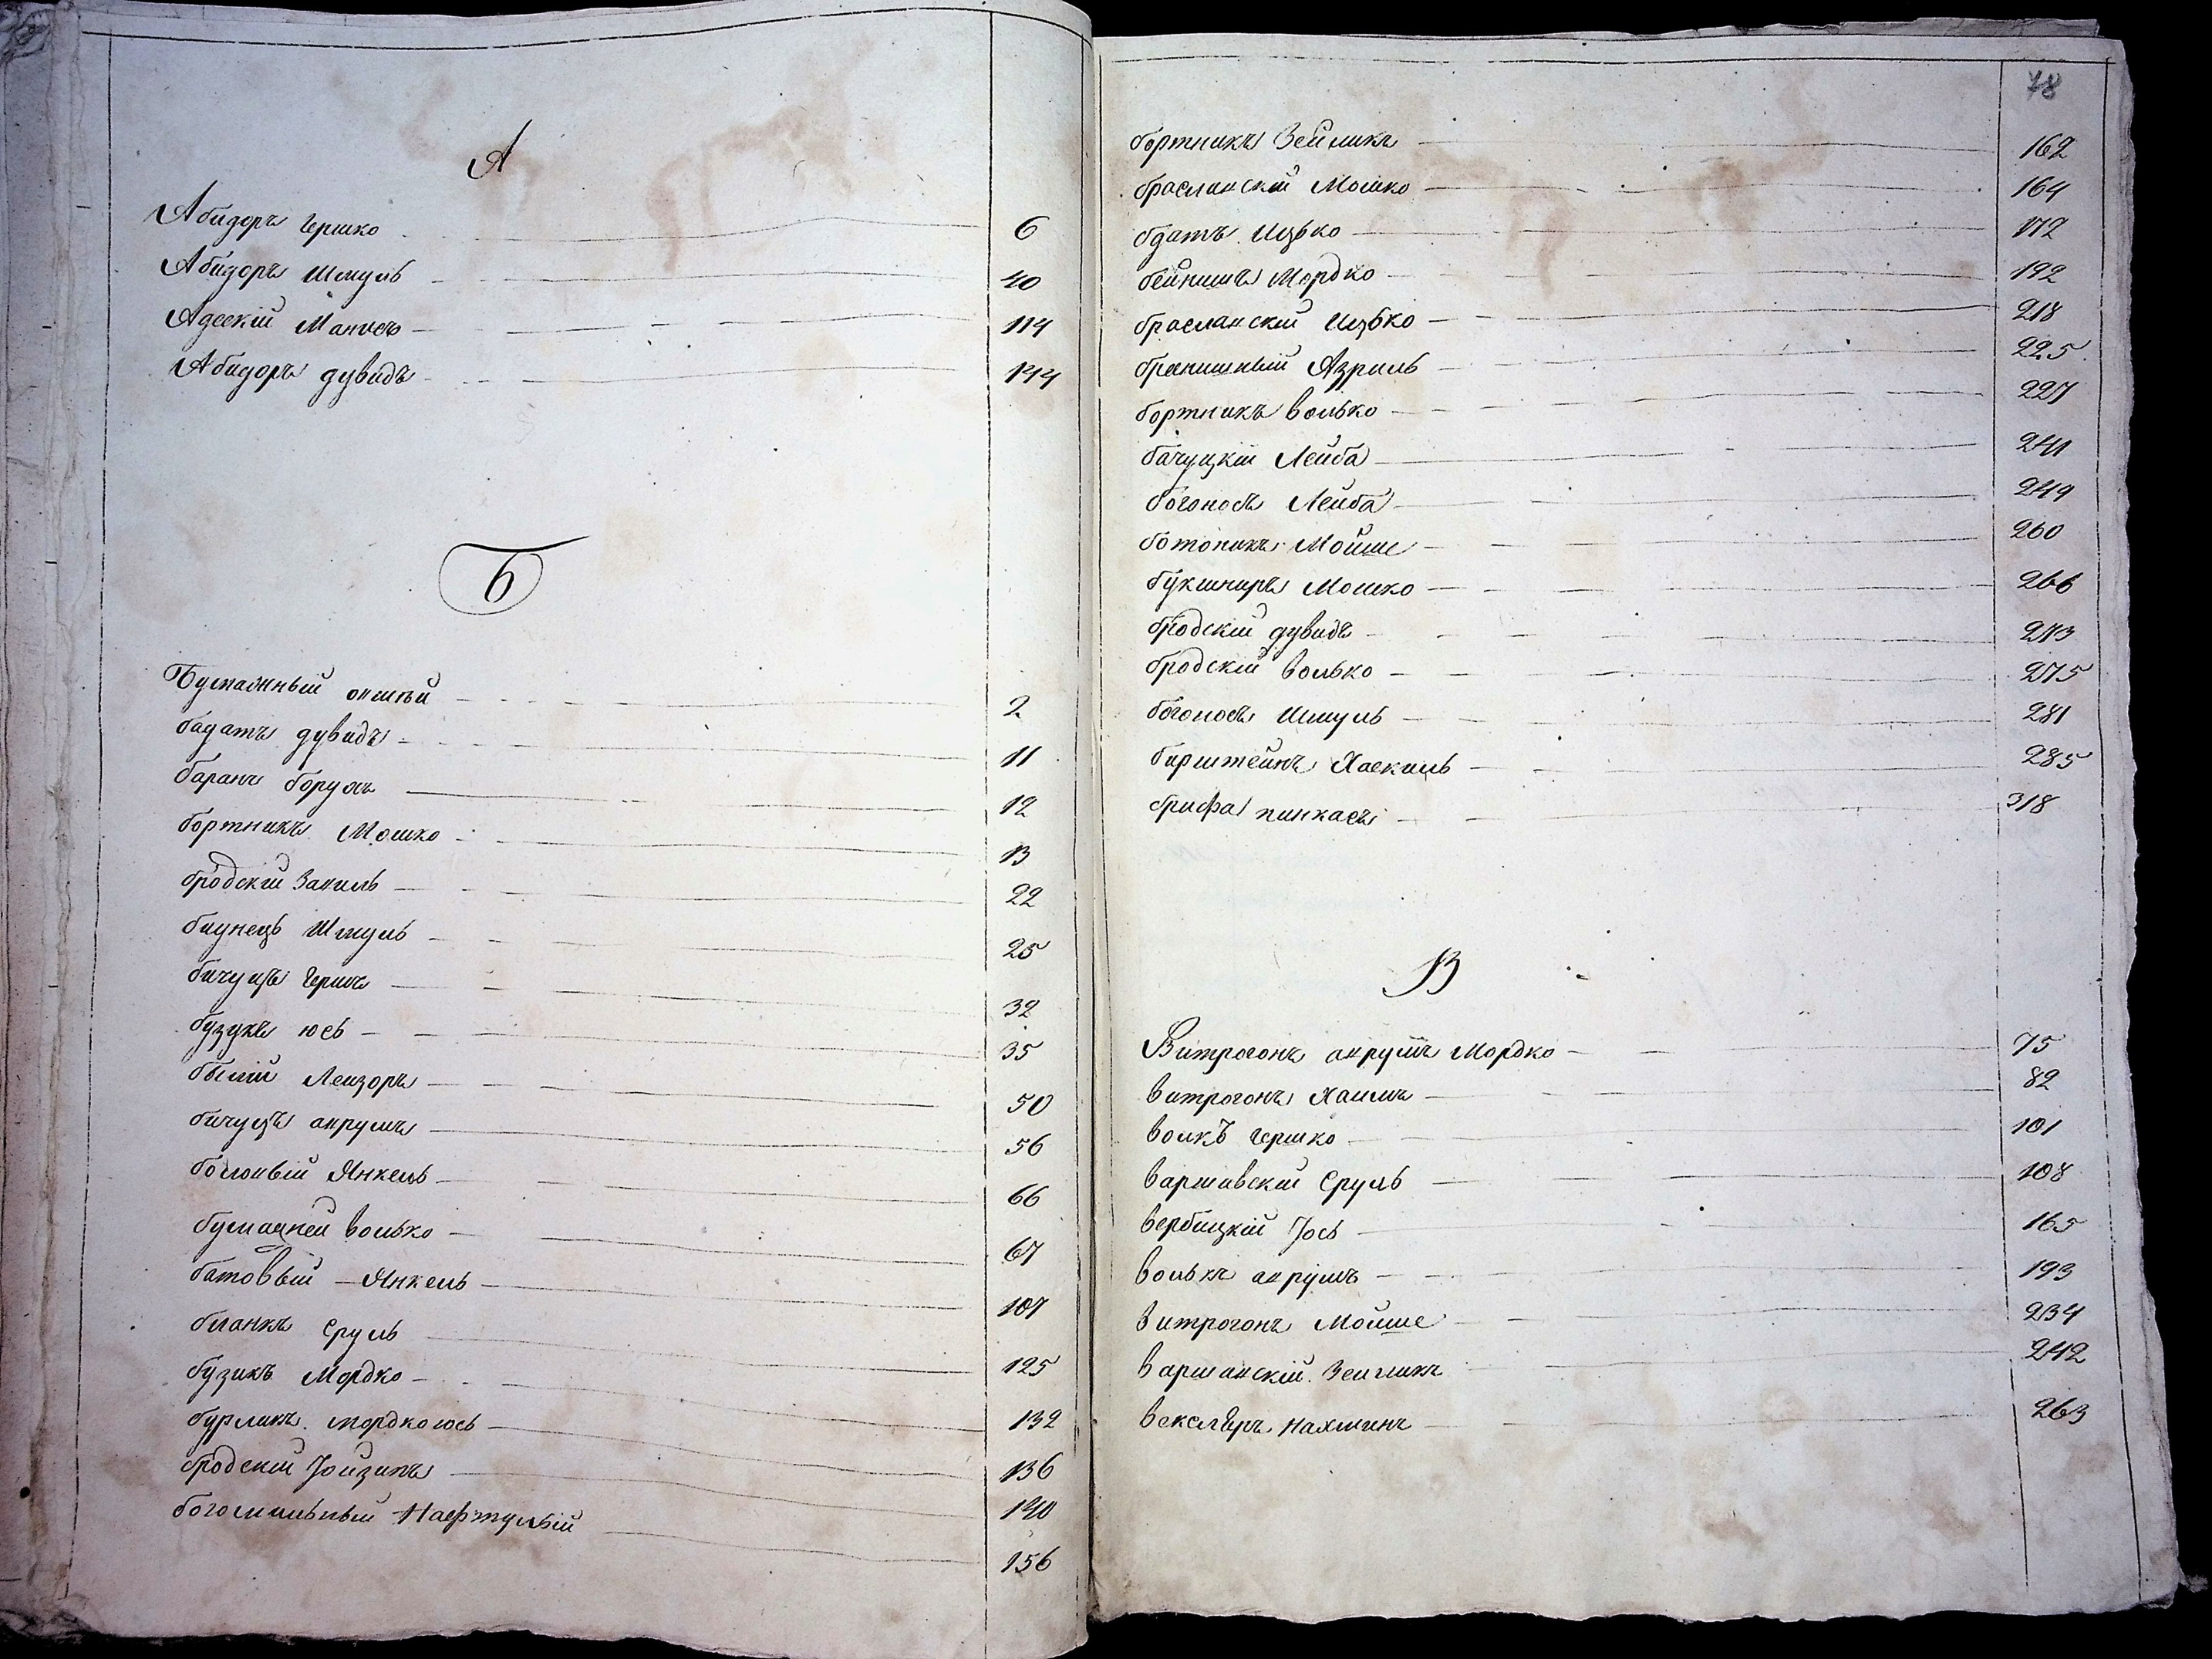 А
Абидоръ Гершко 6
Абидоръ Шмуль 40
Адескій Манисъ 114
Абидоръ дувидъ 144
Б
Бумажный 2
бадатъ дувидъ 11
баранъ борухъ 12
бортникъ Мошко 13
бродскій Занвиль 22
Шмуль 25
бичуцъ Герш 32
бузукъ юсь 35
белый Лейзоръ 50
бичуцъ анрумъ 56
Янкель 66
волько 67
батовый Янкель 107
бланкъ Сруль 125
бузикъ Мордко 132
бурлакъ мордко юсь 136
бродскій Іойзипъ 140
богомильный Нафтулый 156
78
бортникъ Зейликъ 162
браславскій Мошко 164
бдатъ Ицько 172
бейнишъ Мордко 192
браславскій Ицько 218
Азриль 225
бортникъ волько 227
бачуцкій Лейба 241
богоносъ Лейба 249
ботоникъ Мойше 260
букшпиръ Мошко 266
бродскій дувидъ 273
бродскій волько 275
богоносъ Шмуль 281
бирштейнъ Хаскиль 285
брифа пинкасъ 318
В
Витрогонъ анрумъ Мордко 75
витрогонъ Хаимъ 82
волкъ Гершко 101
варшавскій Сруль 108
вербицкій Іось 165
волькъ анрумъ 193
витрогонъ Мойше 234
варшавскій Зейликъ 242
векслеръ Нахманъ 263